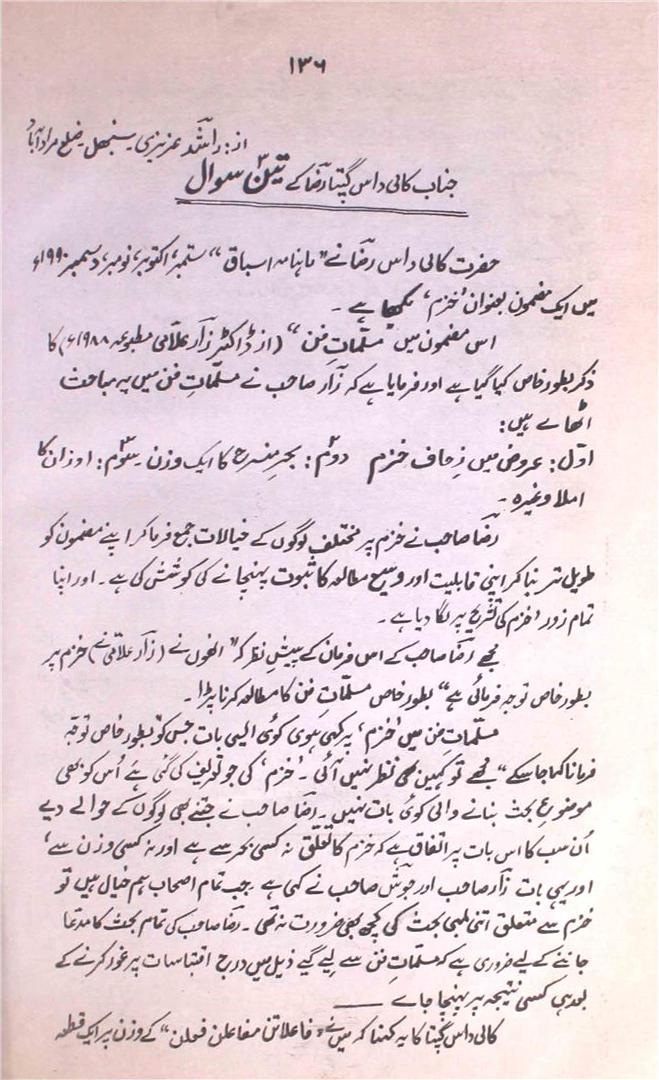 ۱۳۶
از: راشد عزیزی۔ سنبھل۔ ضلع مراد آباد
جناب کالی داس گپتا رضا کے تین ۳ سوال
حضرت کالی داس رضا نے "ماہنامہ اسباق" ستمبر، اکتوبر، نومبر، دسمبر ۱۹۹۰ء
میں ایک مضمون بعنوان 'خزم' لکھا ہے۔
اس مضمون میں "مسلماتِ فن" (از ڈاکٹر زار علامی مطبوعہ ۱۹۸۸ء) کا
ذکر بطور خاص کیا گیا ہے اور فرمایا ہے کہ زار صاحب نے مسلماتِ فن میں یہ مباحث
اٹھائے ہیں:
اوّل: عروض میں زحاف خزم دوم: بحرِ منسرح کا ایک وزن۔ سوم: اوزان کا
املا وغیرہ۔
رضا صاحب نے خزم پر مختلف لوگوں کے خیالات جمع فرما کر اپنے مضمون کو
طویل تر بنا کر اپنی قابلیت اور وسیع مطالعہ کا ثبوت پہنچانے کی کوشش کی ہے۔ اور اپنا
تمام زور 'خزم کی تشریح پر لگا دیا ہے۔
مجھے رضا صاحب کے اس فرمان کے پیشِ نظر کہ "انھوں نے (زار علامی نے) خزم پر
بطور خاص توجہ فرمائی ہے" بطور خاص مسلماتِ فن کا مطالعہ کرنا پڑا۔
مسلماتِ فن میں 'خزم' پہ کہی ہوئی کوئی ایسی بات جس کو "بطور خاص توجہ
فرمانا کہا جا سکے" مجھے تو کہیں بھی نظر نہیں آئی۔ 'خزم' کی جو تعریف کی گئی ہے اُس کو بھی
موضوعِ بحث بنانے والی کوئی بات نہیں۔ رضا صاحب نے جتنے بھی لوگوں کے حوالے دیے
اُن سب کا اس بات پر اتفاق ہے کہ خزم کا تعلق نہ کسی بحر سے ہے اور نہ کسی وزن سے،
اور یہی بات زار صاحب اور جوش صاحب نے کہی ہے۔ جب تمام اصحاب ہم خیال ہیں تو
خزم سے متعلق اتنی لمبی بحث کی کچھ بھی ضرورت نہ تھی۔ رضا صاحب کی تمام بحث کا مدعا
جاننے کے لیے ضروری ہے کہ مسلماتِ فن سے لیے گیے ذیل میں درج اقتباسات پر غور کرنے کے
بعد ہی کسی نتیجہ پر پہنچا جائے ——
کالی داس گپتا کا یہ کہنا کہ میں نے "فاعلاتن مفاعلن فعلن" کے وزن پر ایک قطعہ